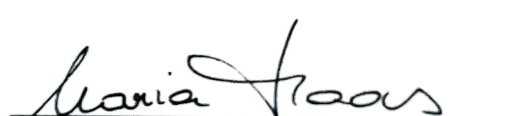 Maria Haas